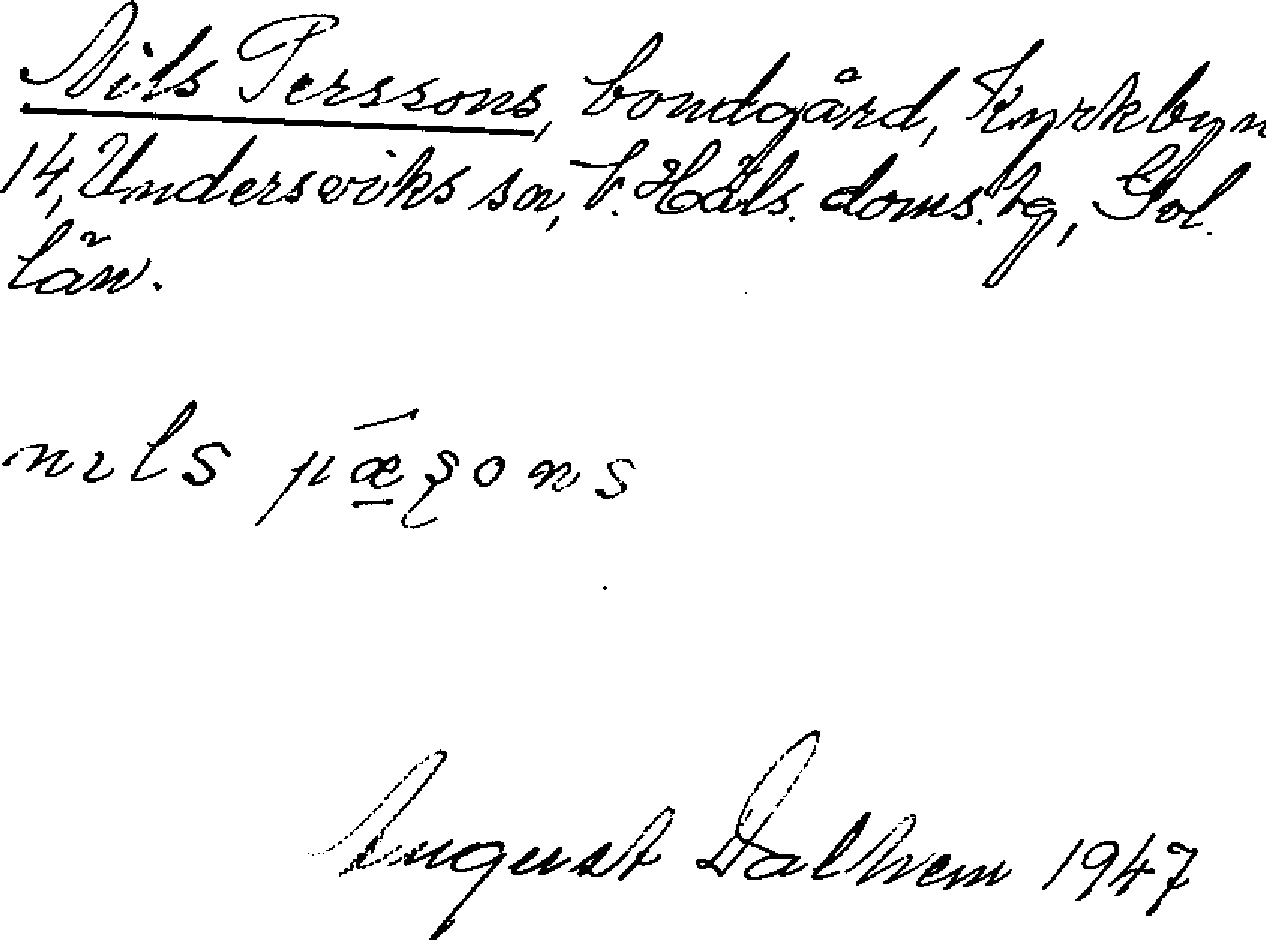 Nils Perssons, bondgård, Kyrkbyn
14, Undersviks sn, V. Häls. doms. tg, Gvl.
län.
nɩls pǽʂons
August Dalhem 1947